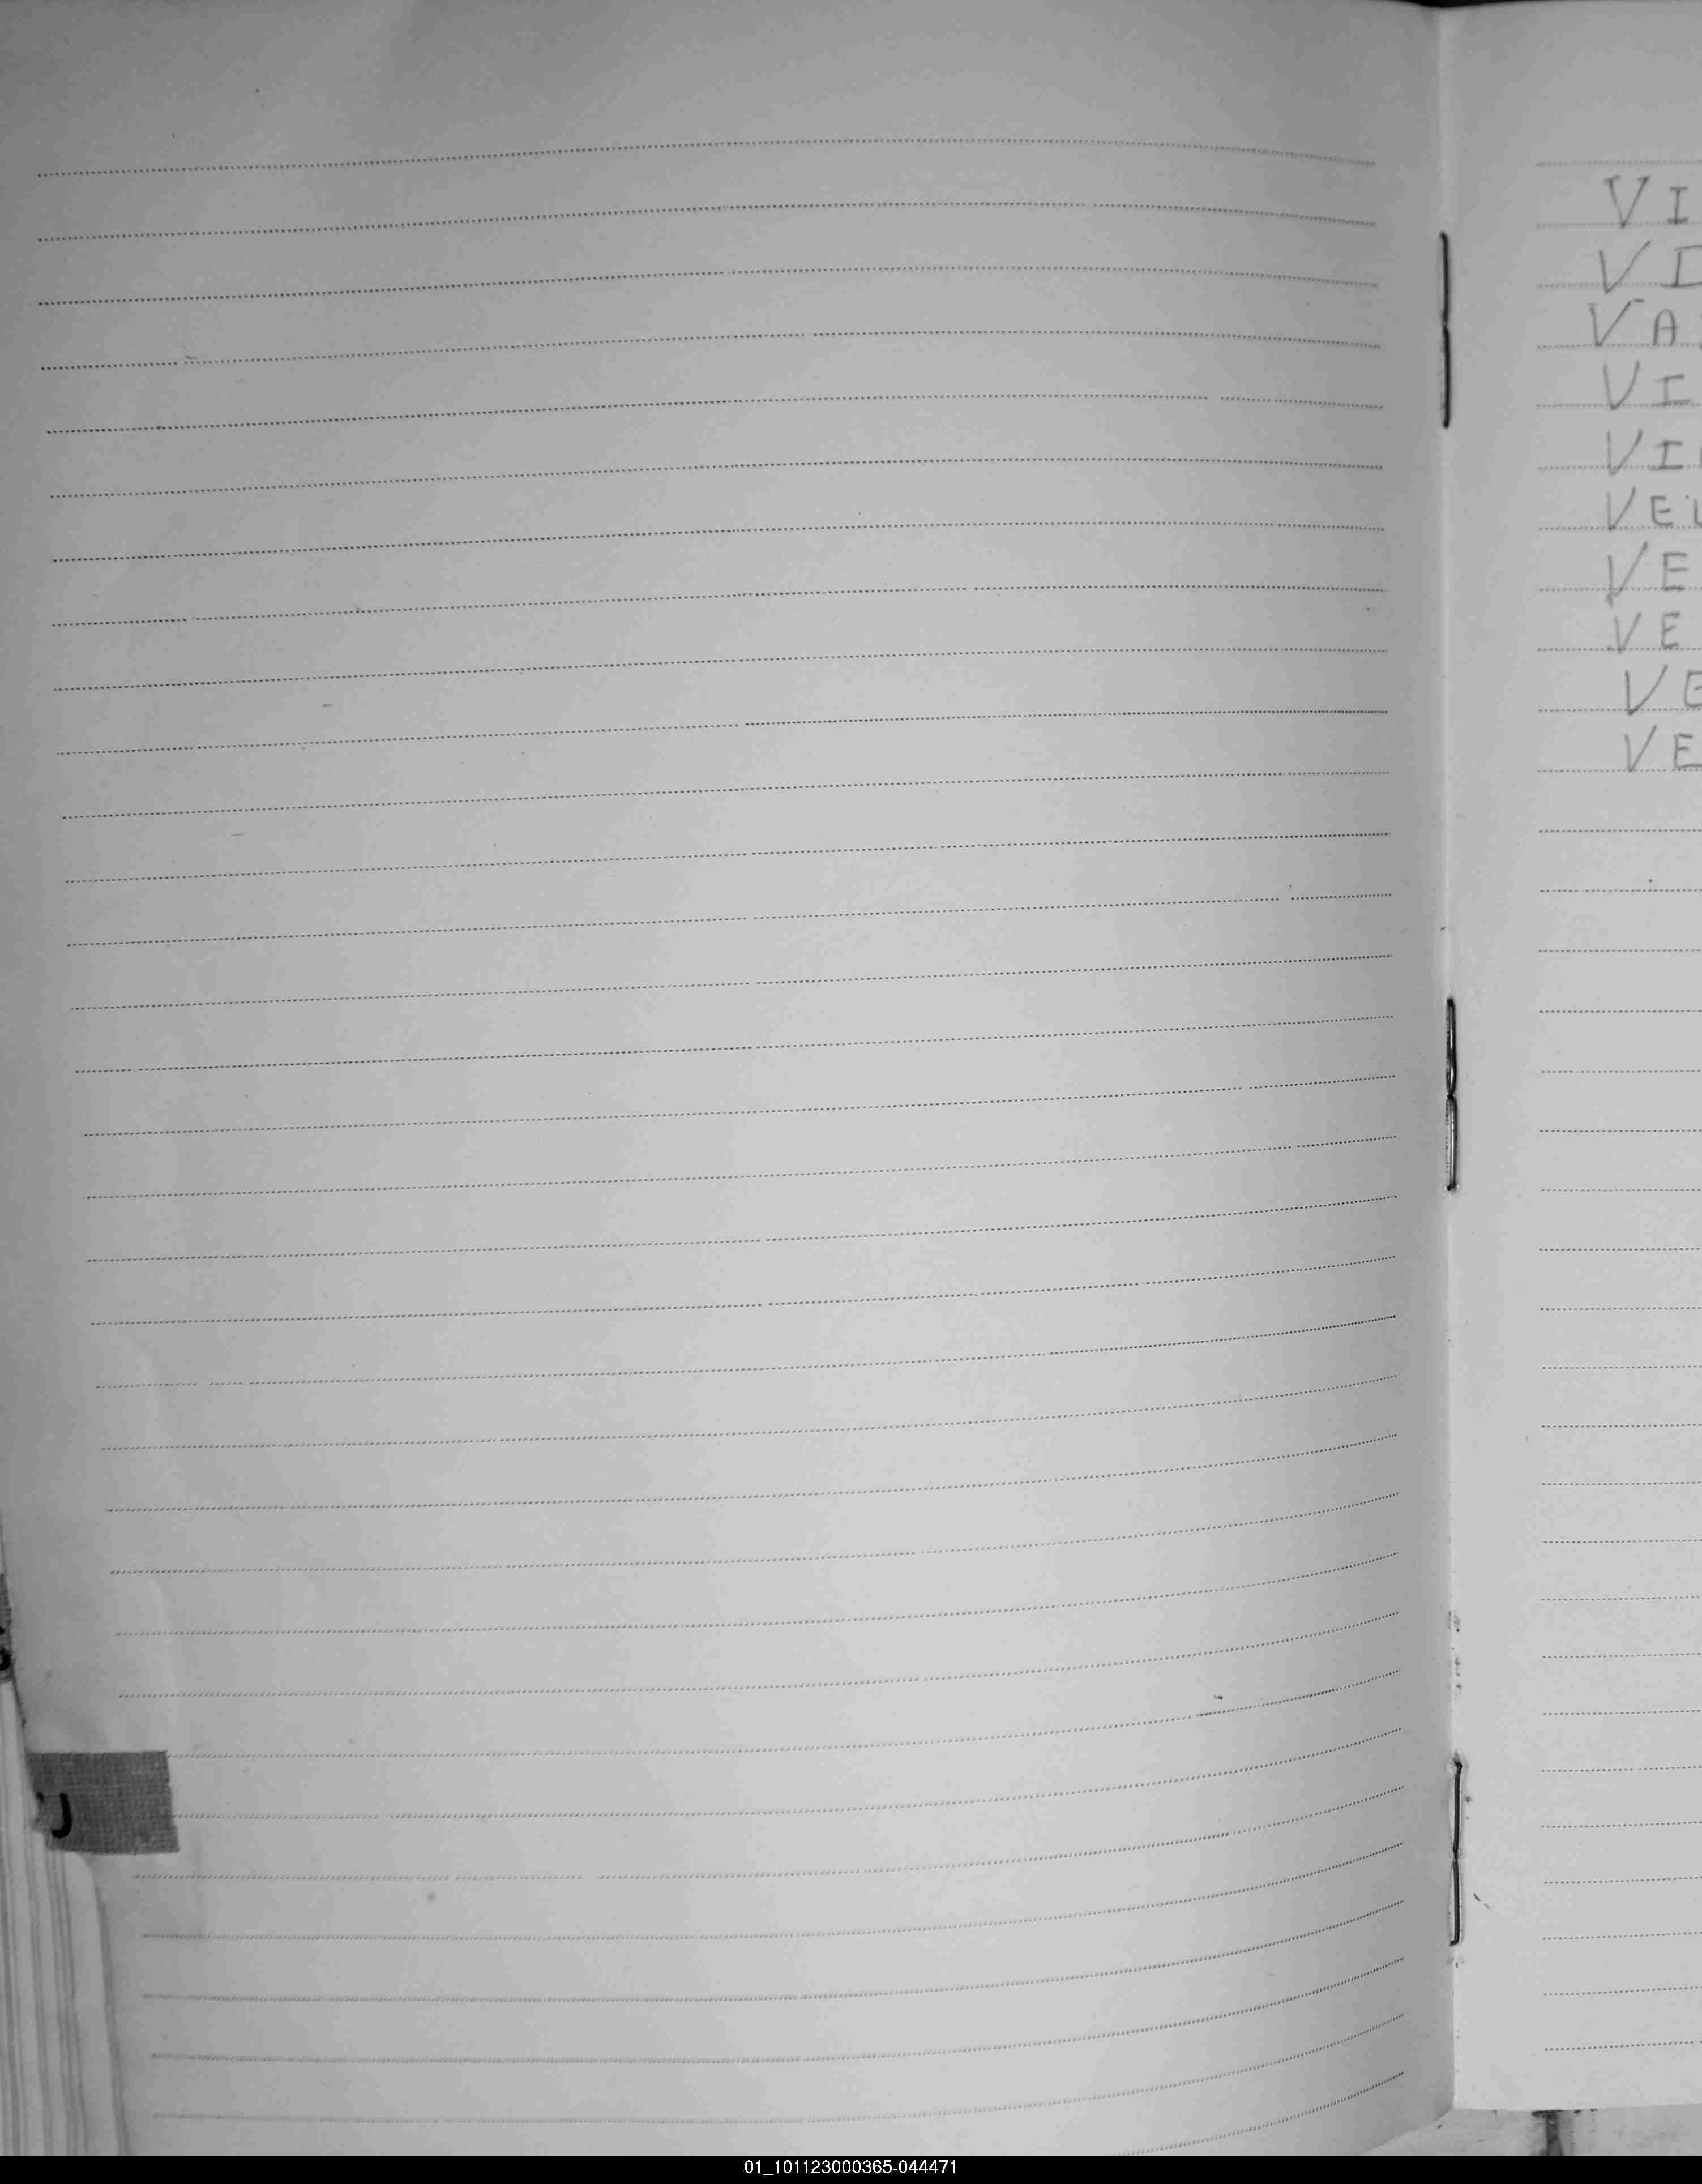 VI
VI
VA
VI
VI
VEL
VE
VE
VE
VE
J
01_101123000365-044471